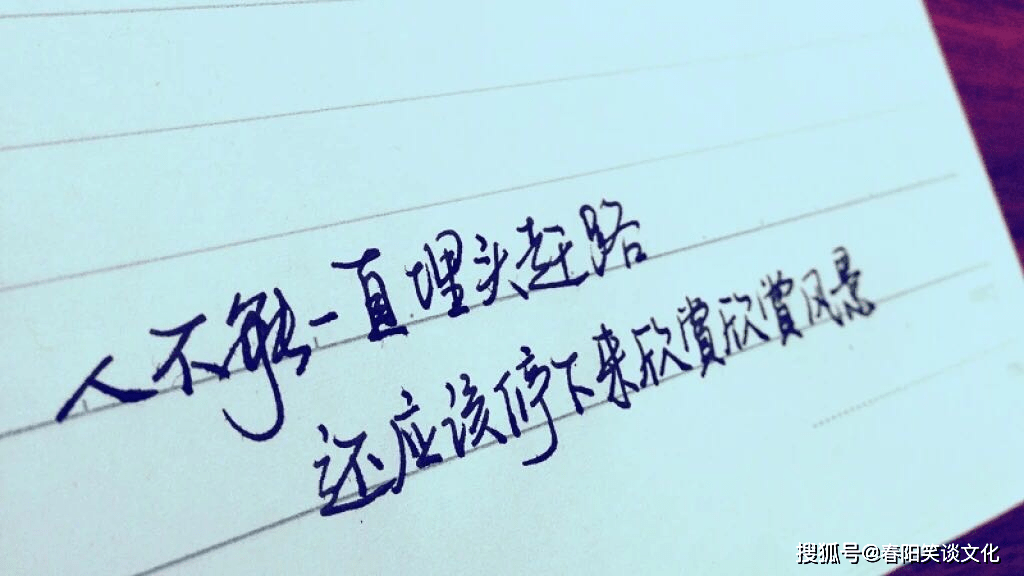 人不能一直埋头赶路
还应该停下来欣赏欣赏风景
搜狐号@春阳笑谈文化